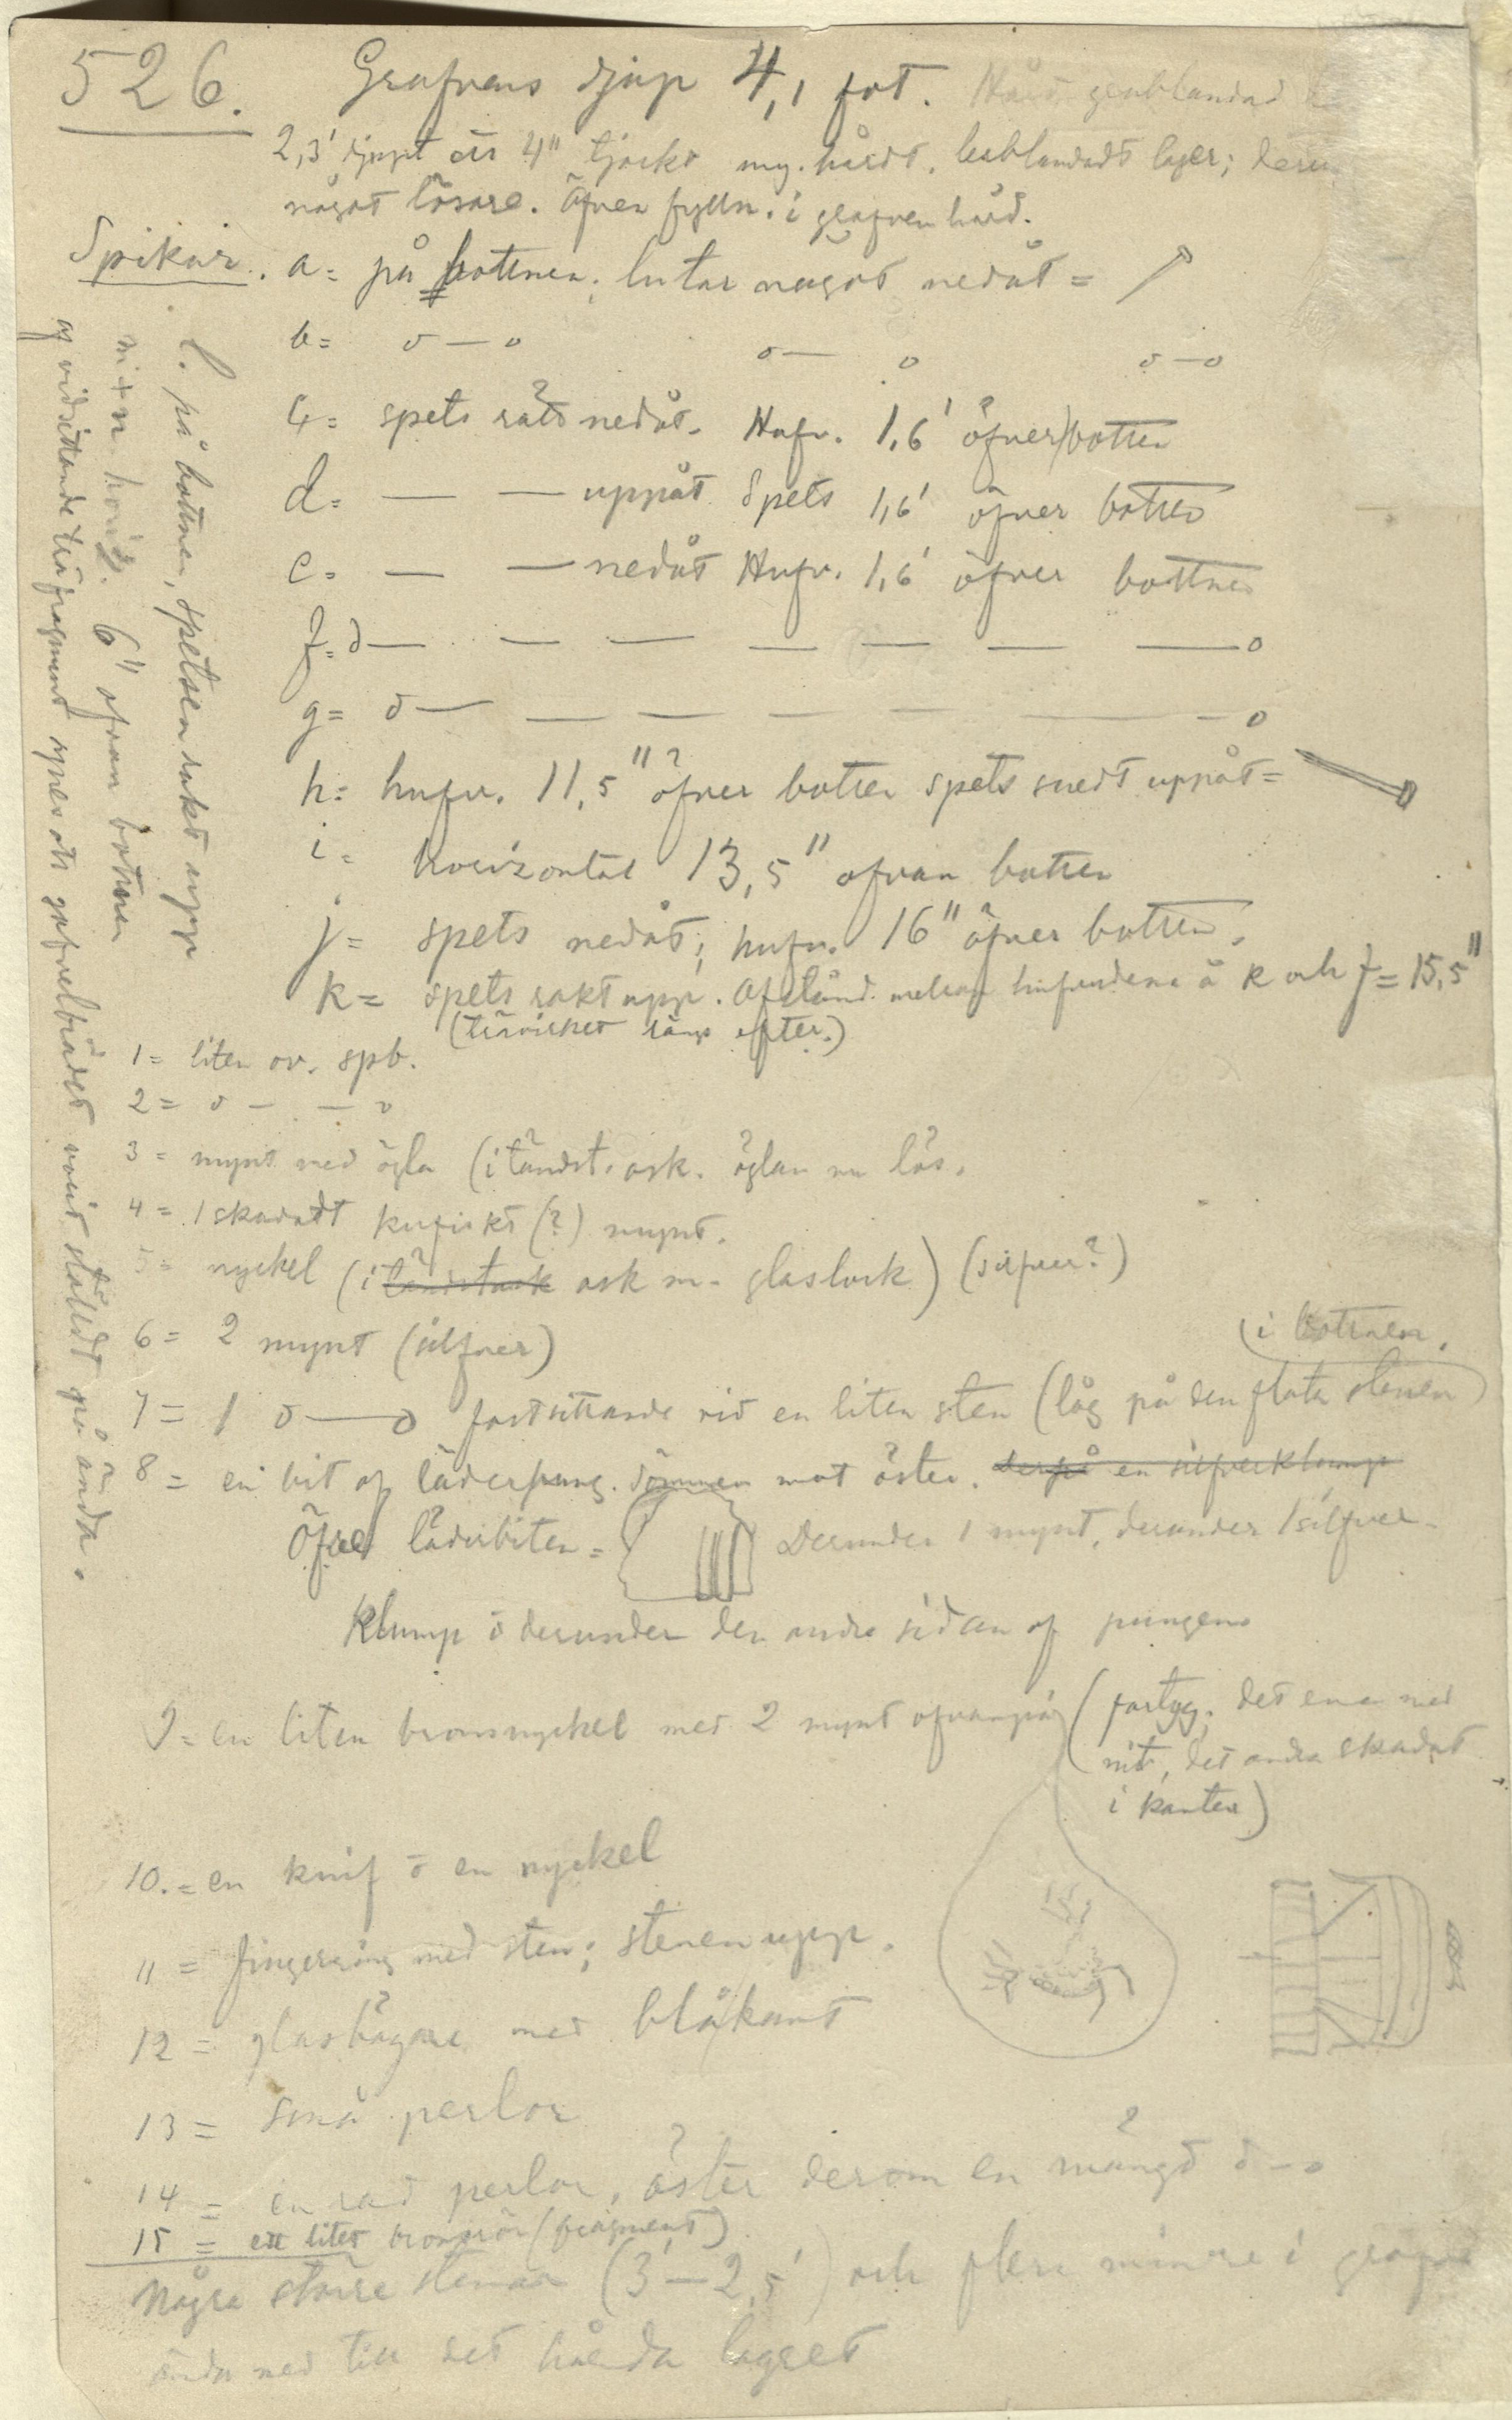 526. Grafvens djup 4,1 fot. Hård, grusblandad
2,3' djupt är 4" tjockt my. hårdt, lerblandadt lager; derun
något lösare. Äfven fylln. i grafven hård.
Spikar. a= på bottnen; lutar något nedåt =
b= o — o o — o o — o
c= spets rätt nedåt. Hufv. 1,6' öfver botten
d= — — uppåt Spets 1,6' öfver botten
e= — — nedåt Hufv. 1,6' öfver bottnen
f= o — — — — — — — o
g= o — — — — — — — o
h= hufv. 11,5" öfver botten spets snedt uppåt=
i= horizontal 13,5" ofvan botten
j= spets nedåt; hufv. 16" öfver botten.
k= spets rakt upp. Afstånd mellan hufvudena å k och j= 15,5"
(trävirket längs efter.)
l. på bottnen, spetsen rakt upp
m+n horiz. 6" ofvan bottnen
af vidsittande träfragment synes att gafvelbrädet varit stäldt på ända.
1= liten ov. spb.
2= o — — o
3= mynt med ögla (i tändst. ask. öglan nu lös.
4= 1 skadadt kufiskt (?) mynt.
5= nyckel (i tändstask ask m. glaslock) (silfver?)
6= 2 mynt (silfver)
7= 1 o — o fastsittande vid en liten sten (låg på den flata stenen
(i bottnen.
8= en bit af läderpung. Sömmen mot öster. derpå en silfverklump
Öfre läderbiten= Derunder 1 mynt, derunder 1 silfver-
klump o derunder den andra sidan af pungen
9= en liten bronsnyckel med 2 mynt ofvanpå (fartyg, det ena med
nit, det andra skadat
i kanten)
10.= en knif o en nyckel
11= fingerring med sten; stenen upp.
12= glasbägare med blå kant
13= små perlor
14= en rad perlor, öster derom en mängd o — o
15= ett litet bronsrör (fragment)
Några större stenar (3'—2,5') och flera mindre i grafven
ända ned till det hårda lagret